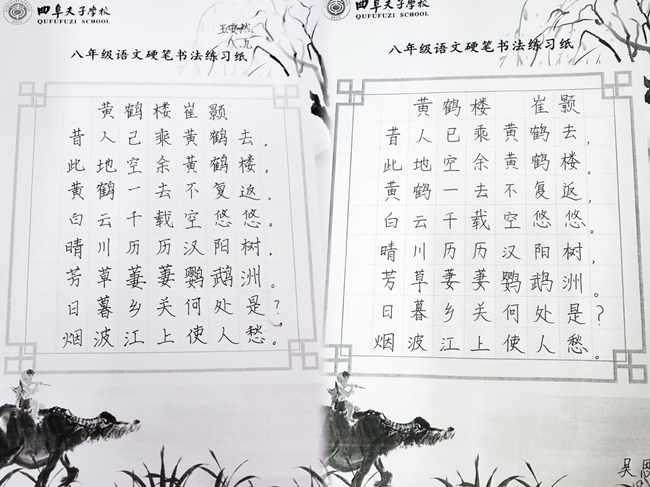 曲阜夫子学校
QUFUFUZI SCHOOL
八年级语文硬笔书法练习纸
黄鹤楼崔颢
昔人已乘黄鹤去,
此地空余黄鹤楼。
黄鹤一去不复返,
白云千载空悠悠。
晴川历历汉阳树,
芳草萋萋鹦鹉洲。
日暮乡关何处是?
烟波江上使人愁。
曲阜夫子学校
QUFUFUZI SCHOOL
八年级语文硬笔书法练习纸
黄鹤楼 崔颢
昔人已乘黄鹤去,
此地空余黄鹤楼。
黄鹤一去不复返,
白云千载空悠悠。
晴川历历汉阳树,
芳草萋萋鹦鹉洲。
日暮乡关何处是?
烟波江上使人愁。